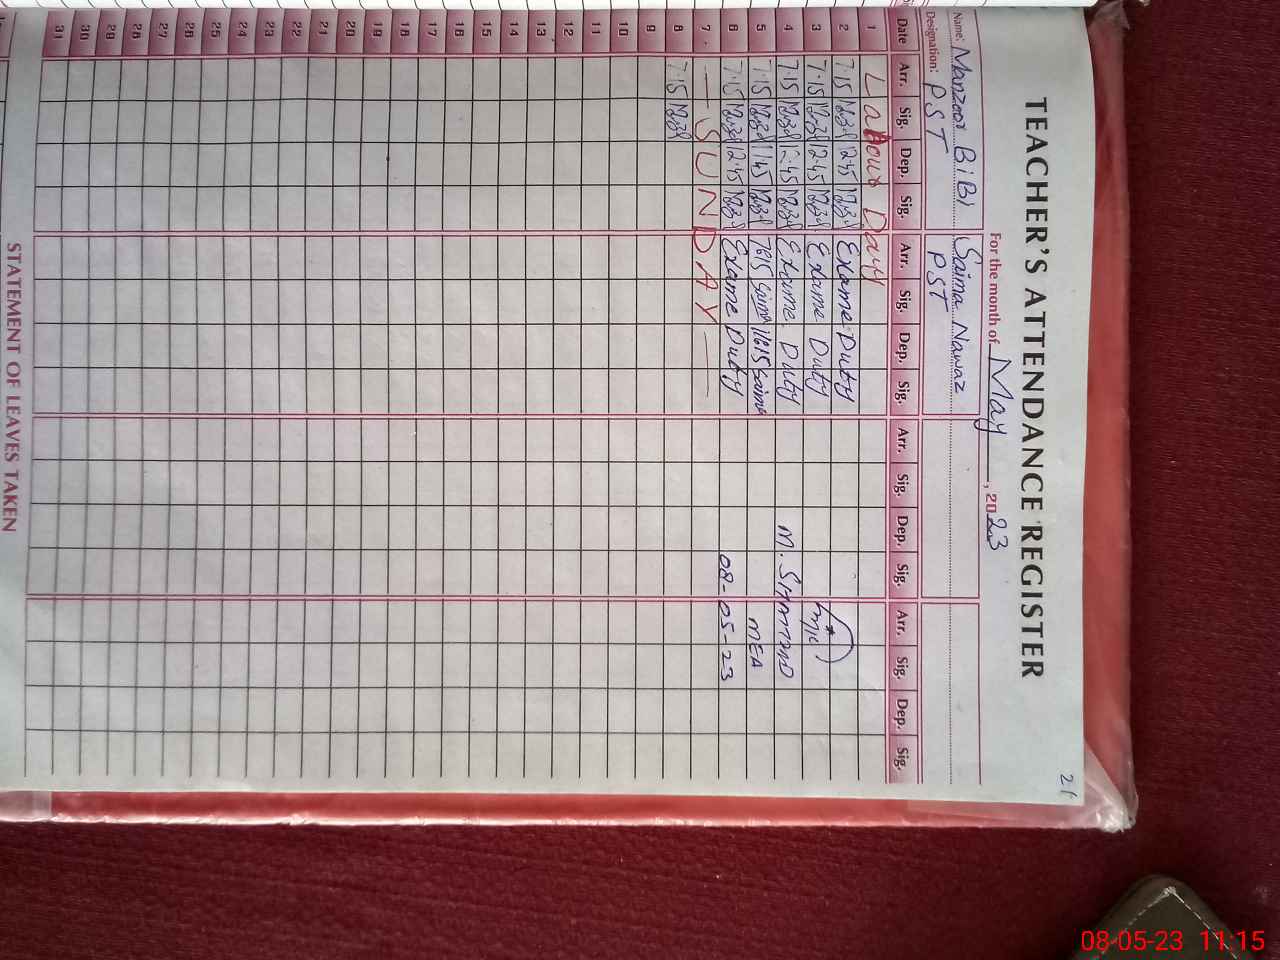 21
TEACHER'S ATTENDANCE REGISTER
For the month of May, 2023
Name: Manzoor BiBi Saima Nawaz
Designation: PST PST
Date Arr. Sig. Dep. Sig. Arr. Sig. Dep. Sig. Arr. Sig. Dep. Sig. Arr. Sig. Dep. Sig.
1 Labour Day
2 7.15 12.45 Exame Duty
3 7.15 12.45 Exame Duty
4 7.15 12.45 Exame Duty M. SHAMMAD
5 7.15 11.45 7:15 Saima 11:15 Saima MEA
6 7.15 12.45 Exame Duty 08-05-23
7 — SUNDAY —
8 7.15
9
10
11
12
13
14
15
16
17
18
19
20
21
22
23
24
25
26
27
28
29
30
31
STATEMENT OF LEAVES TAKEN
08-05-23 11:15